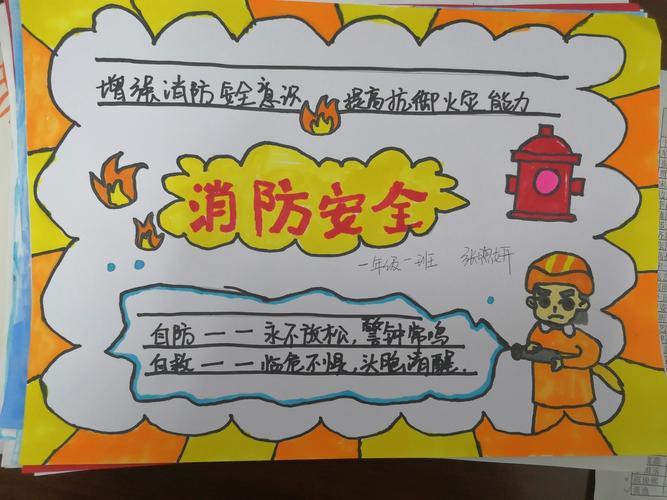 增强消防安全意识 提高抗御火灾能力
消防安全
一年级一班 张
自防——永不放松,警钟常鸣
自救——临危不惧,头脑清醒.